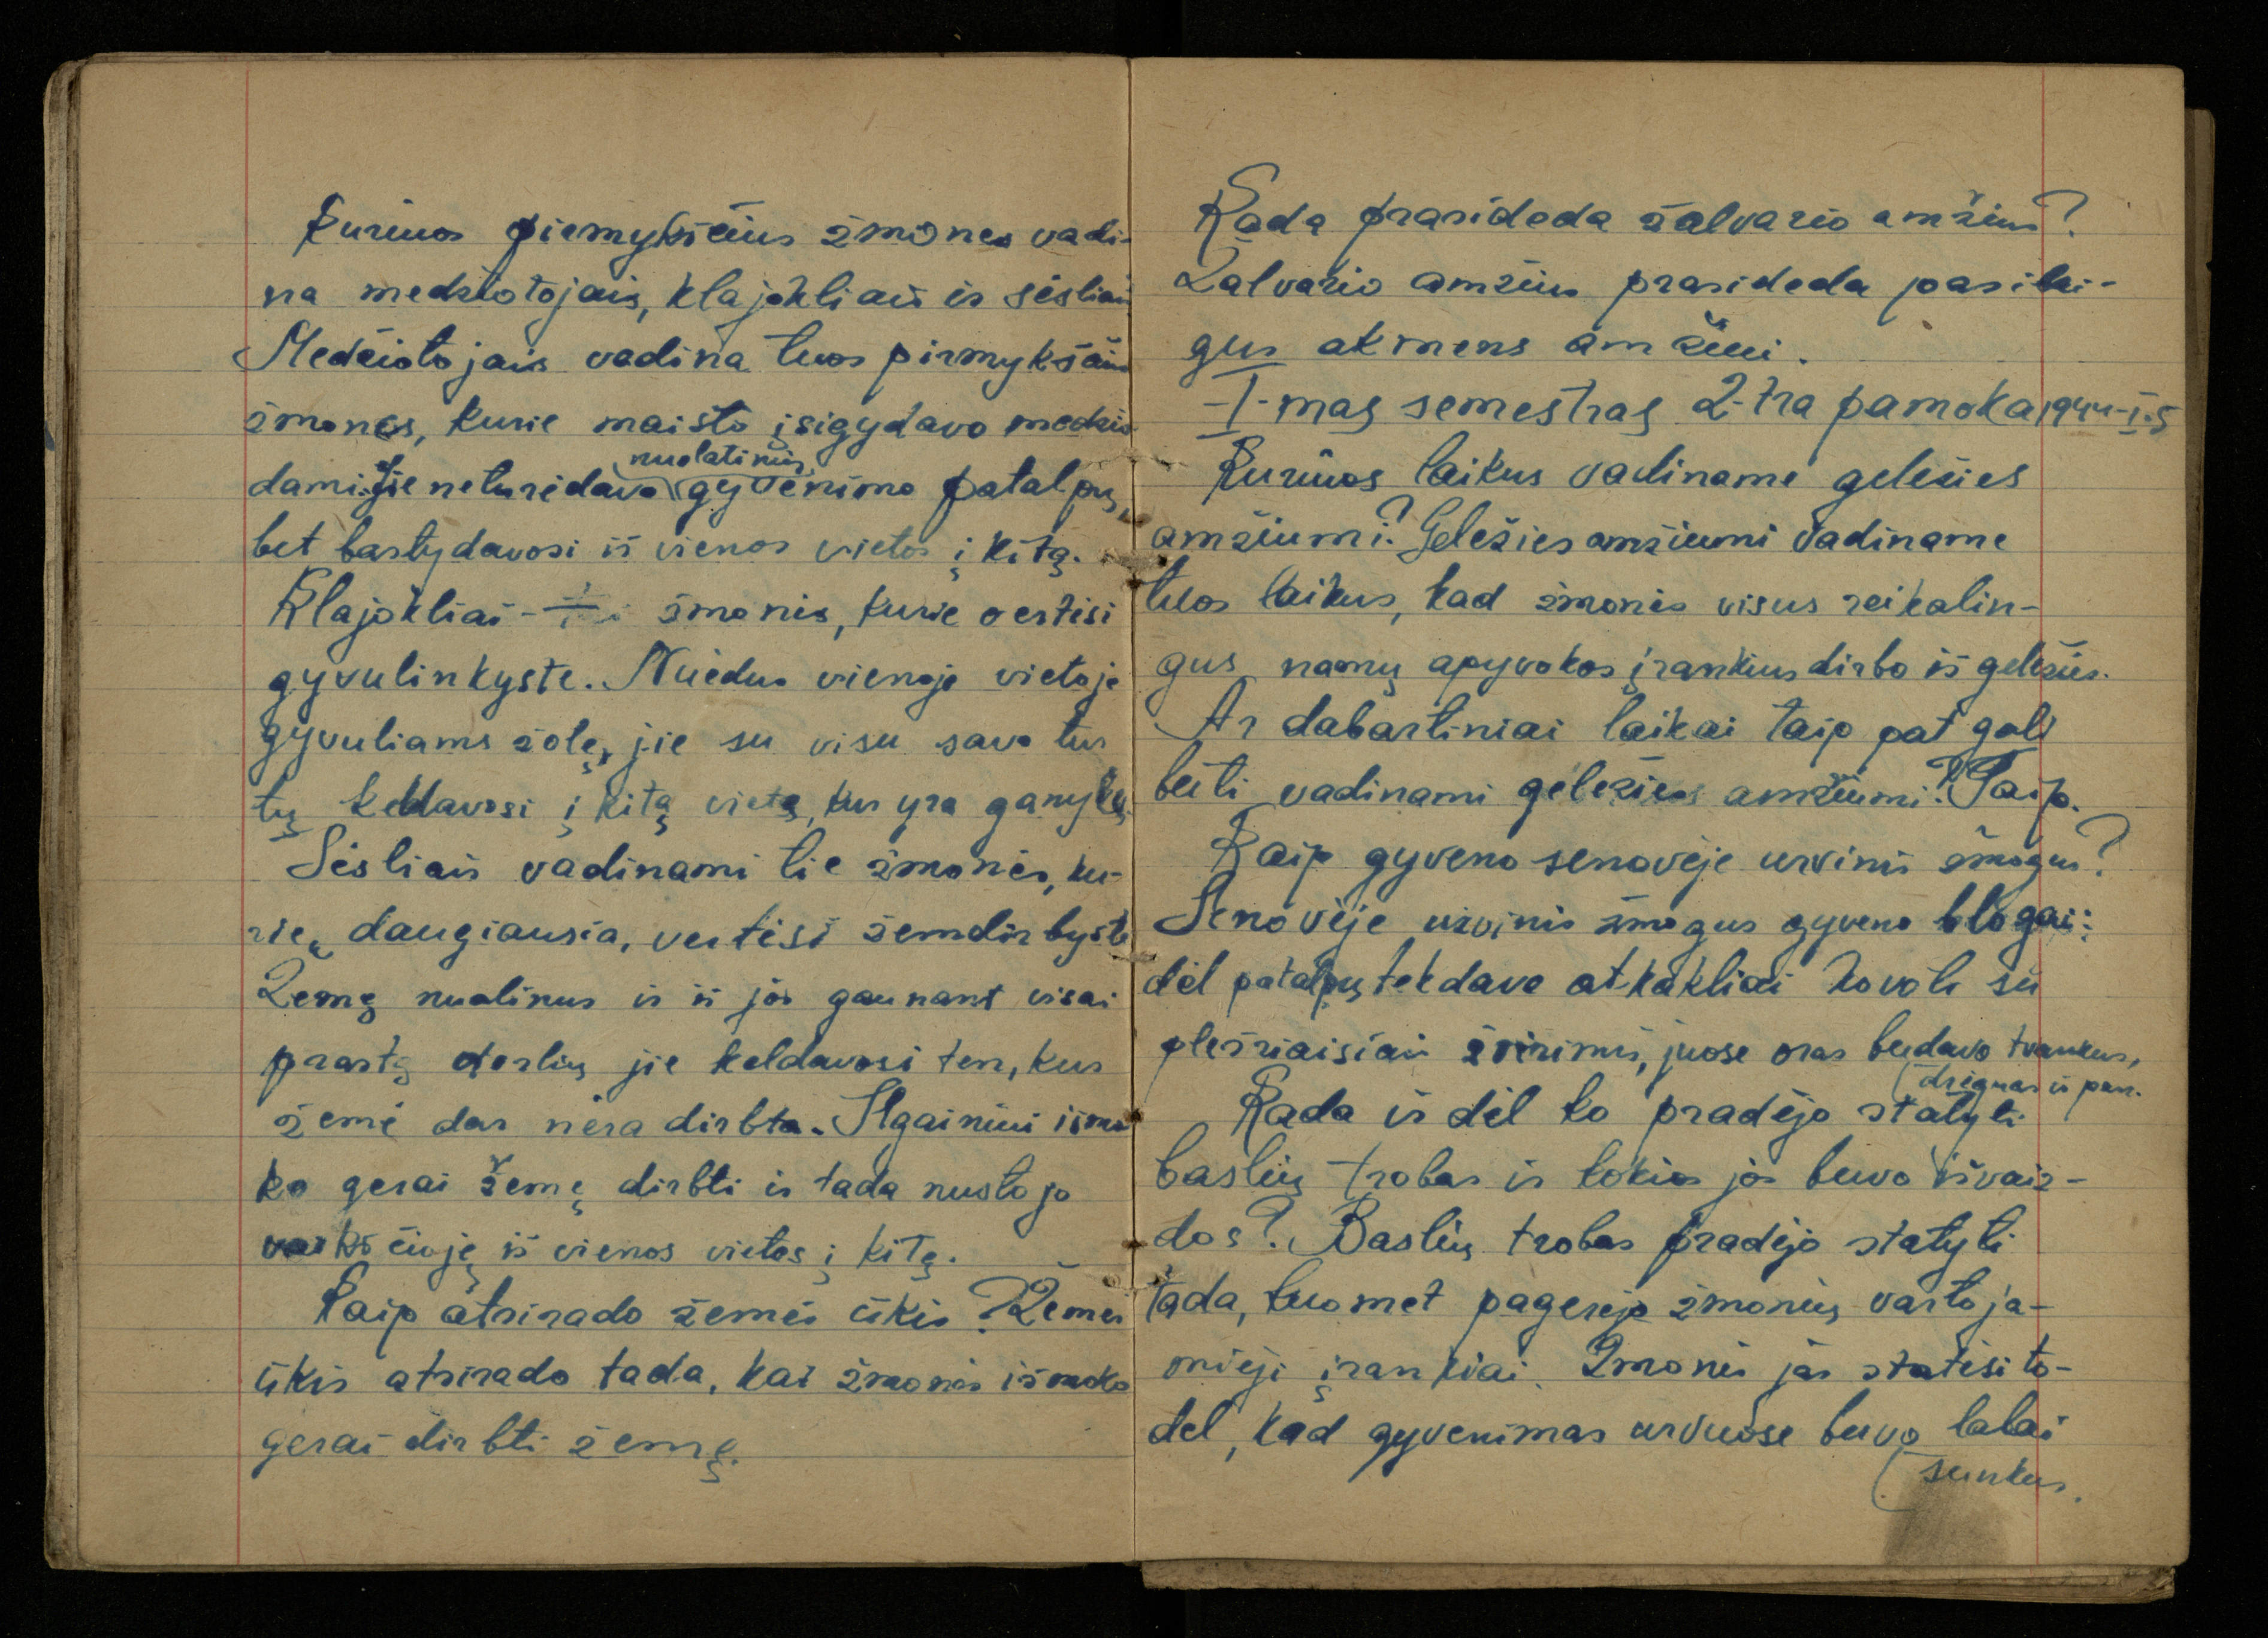 Kuriuos pirmykščius žmones vadi-
na medžiotojais, klajokliais ir sėsliais
Medžiotojais vadina tuos pirmykščius
žmones, kurie maisto įsigydavo medžio
nuolatinių
dami. Jie neturėdavo gyvenimo patalpų,
bet bastydavosi iš vienos vietos į kitą.
Klajokliai - žmonės, kurie vertėsi
gyvulinkyste. Nuėdus vienoje vietoje
gyvuliams žolę, jie su visu savo tur
tų keldavosi į kitą vietą, kur yra ganyklų.
Sėsliais vadinami tie žmonės, ku-
rie, daugiausia, vertėsi žemdirbyste
Žemę nualinus ir iš jos gaunant visai
prastą derlių jie keldavosi ten, kur
žemė dar nėra dirbta. Ilgainiui išmo
ko gerai žemę dirbti ir tada nustojo
vaikščioję iš vienos vietos į kitą.
Kaip atsirado žemės ūkis? Žemės
ūkis atsirado tada, kai žmonės išmoko
gerai dirbti žemę.
Kada prasideda žalvario amžius?
Žalvario amžius prasideda pasibai-
gus akmens amžiui.
I-mas semestras 2-tra pamoka 1944-I-5
Kuriuos laikus vadiname geležies
amžiumi? Geležies amžiumi vadiname
tuos laikus, kad žmonės visus reikalin-
gus namų apyvokos įrankius dirbo iš geležies.
Ar dabartiniai laikai taip pat gali
būti vadinami geležies amžiumi? Taip.
Kaip gyveno senovėje urvinis žmogus?
Senovėje urvinis žmogus gyveno blogai:
dėl patalpų tekdavo atkakliai kovoti su
plėšriaisiais žvėrimis, juose oras būdavo tvankus,
drėgnas ir pan.
Kada ir dėl ko pradėjo statyti
baslių trobas ir kokios jos buvo išvaiz-
dos? Baslių trobas pradėjo statyti
tada, kuomet pagerėjo žmonių vartoja-
mieji įrankiai. Žmonės jas statėsi to-
dėl, kad gyvenimas urvuose buvo labai
sunkus.